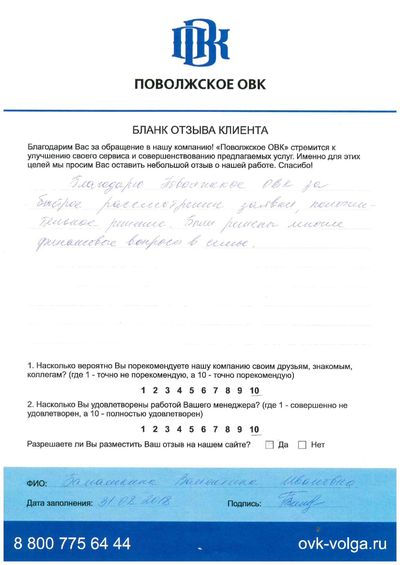 ОВК
ПОВОЛЖСКОЕ ОВК
БЛАНК ОТЗЫВА КЛИЕНТА
Благодарим Вас за обращение в нашу компанию! «Поволжское ОВК» стремится к
улучшению своего сервиса и совершенствованию предлагаемых услуг. Именно для этих
целей мы просим Вас оставить небольшой отзыв о нашей работе. Спасибо!
Благодарю Поволжское ОВК за
быстрое рассмотрение заявки, положи-
тельное решение. Были решены многие
финансовые вопросы в семье.
1. Насколько вероятно Вы порекомендуете нашу компанию своим друзьям, знакомым,
коллегам? (где 1 - точно не порекомендую, а 10 - точно порекомендую)
1 2 3 4 5 6 7 8 9 10
2. Насколько Вы удовлетворены работой Вашего менеджера? (где 1 - совершенно не
удовлетворен, а 10 - полностью удовлетворен)
1 2 3 4 5 6 7 8 9 10
Разрешаете ли Вы разместить Ваш отзыв на нашем сайте? Да Нет
ФИО: Валентина Ивановна
Дата заполнения: 2018 Подпись:
8 800 775 64 44 ovk-volga.ru